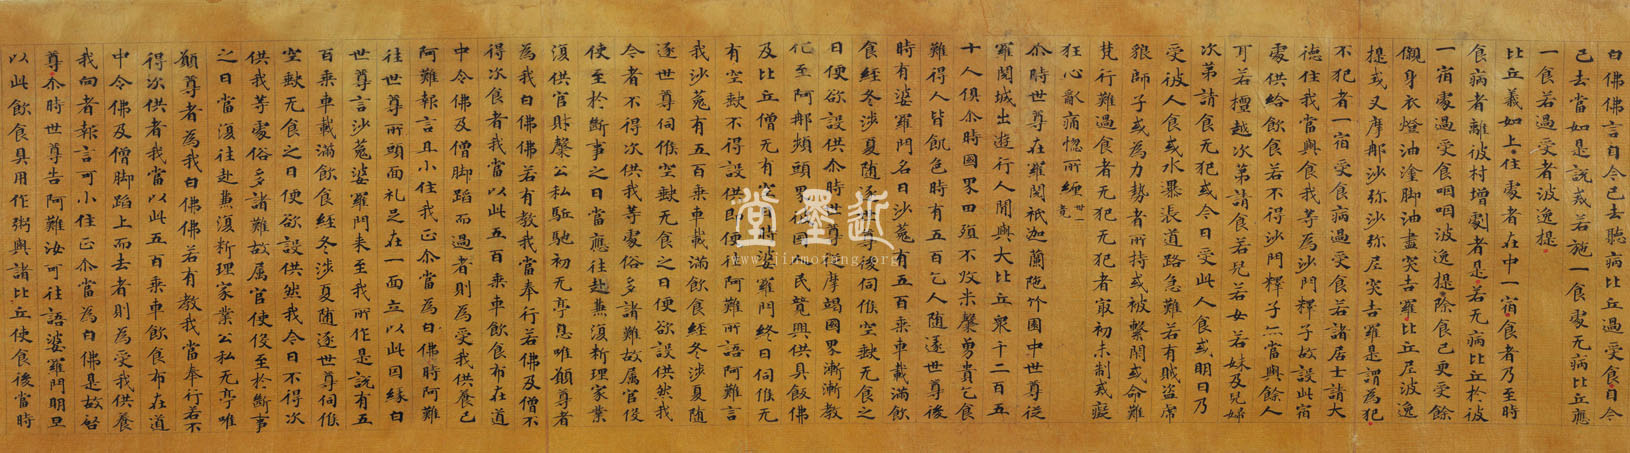 白佛佛言自今已去聽病比丘過受食自今
已去當如是說戒若施一食處无病比丘應
一食若過受者波逸提
比丘義如上住處者在中一宿食者乃至時
食病者離彼村增劇者是若无病比丘於彼
一宿處過受食咽咽波逸提除食已更受餘
儭身衣燈油塗脚油盡突吉羅比丘尼波逸
提式叉摩那沙弥沙弥尼突吉羅是謂為犯
不犯者一宿受食病過受食若諸居士請大
德住我當與食我等為沙門釋子故設此宿
處供給飲食若不得沙門釋子亦當與餘人
可若檀越次第請食若兒若女若妹及兒婦
次第請食无犯或今日受此人食或明日乃
受彼人食或水暴漲道路急難若有賊盜虎
狼師子或為力勢者所持或被繫閉或命難
梵行難過食者无犯无犯者最初未制戒癡
狂心亂痛惱所纏 卅一竟
尒時世尊在羅閱祇迦蘭陁竹園中世尊從
羅閱城出遊行人間與大比丘眾千二百五
十人俱尒時國界田須不收米糓勇貴乞食
難得人皆飢色時有五百乞人随逐世尊後
時有婆羅門名曰沙菟有五百乘車載滿飲
食経冬涉夏随逐世尊後伺俟空缺无食之
日便欲設供尒時世尊從摩竭國界漸漸教
化至阿那頻頭界彼國人民競興供具飯佛
及比丘僧无有空缺時婆羅門終日伺俟无
有空缺不得設供即便往阿難所語阿難言
我沙菟有五百乘車載滿飲食経冬涉夏随
逐世尊伺俟空缺无食之日便欲設供然我
今者不得次供我等處俗多諸難故属官役
使至於斷事之日當應往赴兼復料理家業
復供官財糓公私駈馳初无亭息唯願尊者
為我白佛若有教我當奉行若佛及僧不
得次食者我當以此五百乘車飲食布在道
中令佛及僧脚蹈而過者則為受我供養已
阿難報言且小住我正尒當為白佛時阿難
往世尊所頭面礼足在一面立以此因緣白
世尊言沙菟婆羅門来至我所作是說有五
百乘車載滿飲食経冬涉夏随逐世尊伺俟
空缺无食之日便欲設供然我今日不得次
供我等處俗多諸難故属官使役至於斷事
之日當復往赴兼復料理家業公私无亭唯
願尊者為我白佛佛若有教我當奉行若不
得次供者我當以此五百乘車飲食布在道
中令佛及僧脚蹈上而去者則為受我供養
我向者報言可小住正尒當為白佛是故啓
尊尒時世尊告阿難汝可往語婆羅門明旦
以此飲食具用作粥與諸比丘使食後當時
逝墨堂
www.jinmotang.org